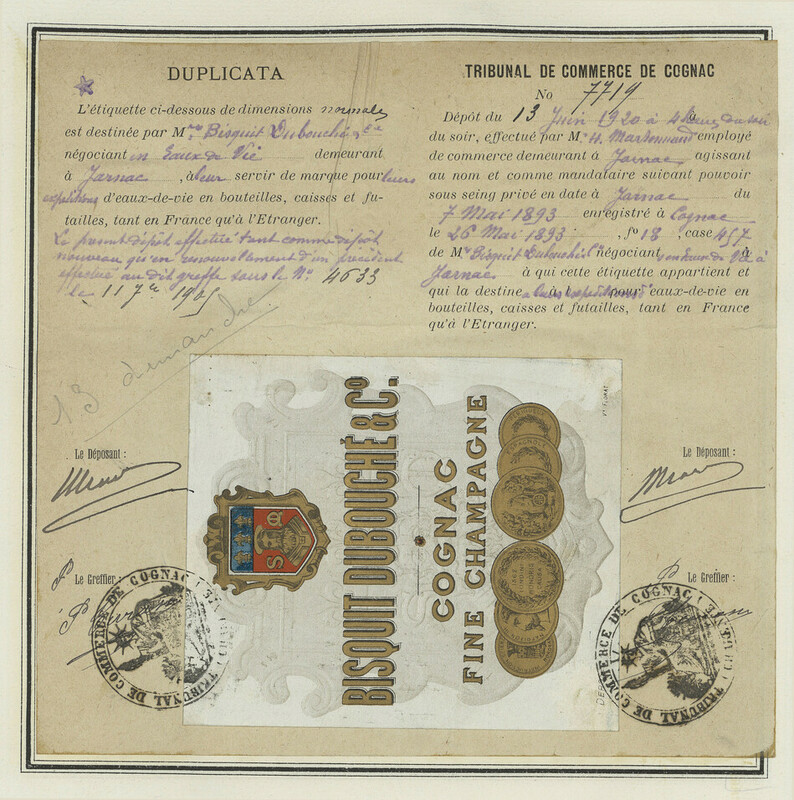 DUPLICATA
L'étiquette ci-dessous de dimensions normales
est destinée par M.rs Bisquit Dubouché & Cie
négociant en Eaux de Vie demeurant
à Jarnac, à leur servir de marque pour leurs
expéditions d'eaux-de-vie en bouteilles, caisses et fu-
tailles, tant en France qu'à l'Etranger.
Le présent dépôt effectué tant comme dépôt
nouveau qu'en renouvellement d'un précédent
effectué au dit greffe sous le No. 4633
le 11 7re 1905
13 demande
TRIBUNAL DE COMMERCE DE COGNAC
No 7719
Dépôt du 13 Juin 1920 à 4 heures du soir
du soir, effectué par M. H. employé
de commerce demeurant à Jarnac agissant
au nom et comme mandataire suivant pouvoir
sous seing privé en date à Jarnac du
7 Mai 1893 enregistré à Cognac
le 26 Mai 1893, fo 18, case 457
de Mrs Bisquit Dubouché négociant en Eaux de Vie à
Jarnac à qui cette étiquette appartient et
qui la destine à leurs expéditions d'eaux-de-vie en
bouteilles, caisses et futailles, tant en France
qu'à l'Etranger.
BISQUIT DUBOUCHÉ & Co.
COGNAC
FINE CHAMPAGNE
Le Déposant :
Le Greffier :
TRIBUNAL DE COMMERCE DE COGNAC
Le Déposant :
Le Greffier :
TRIBUNAL DE COMMERCE DE COGNAC